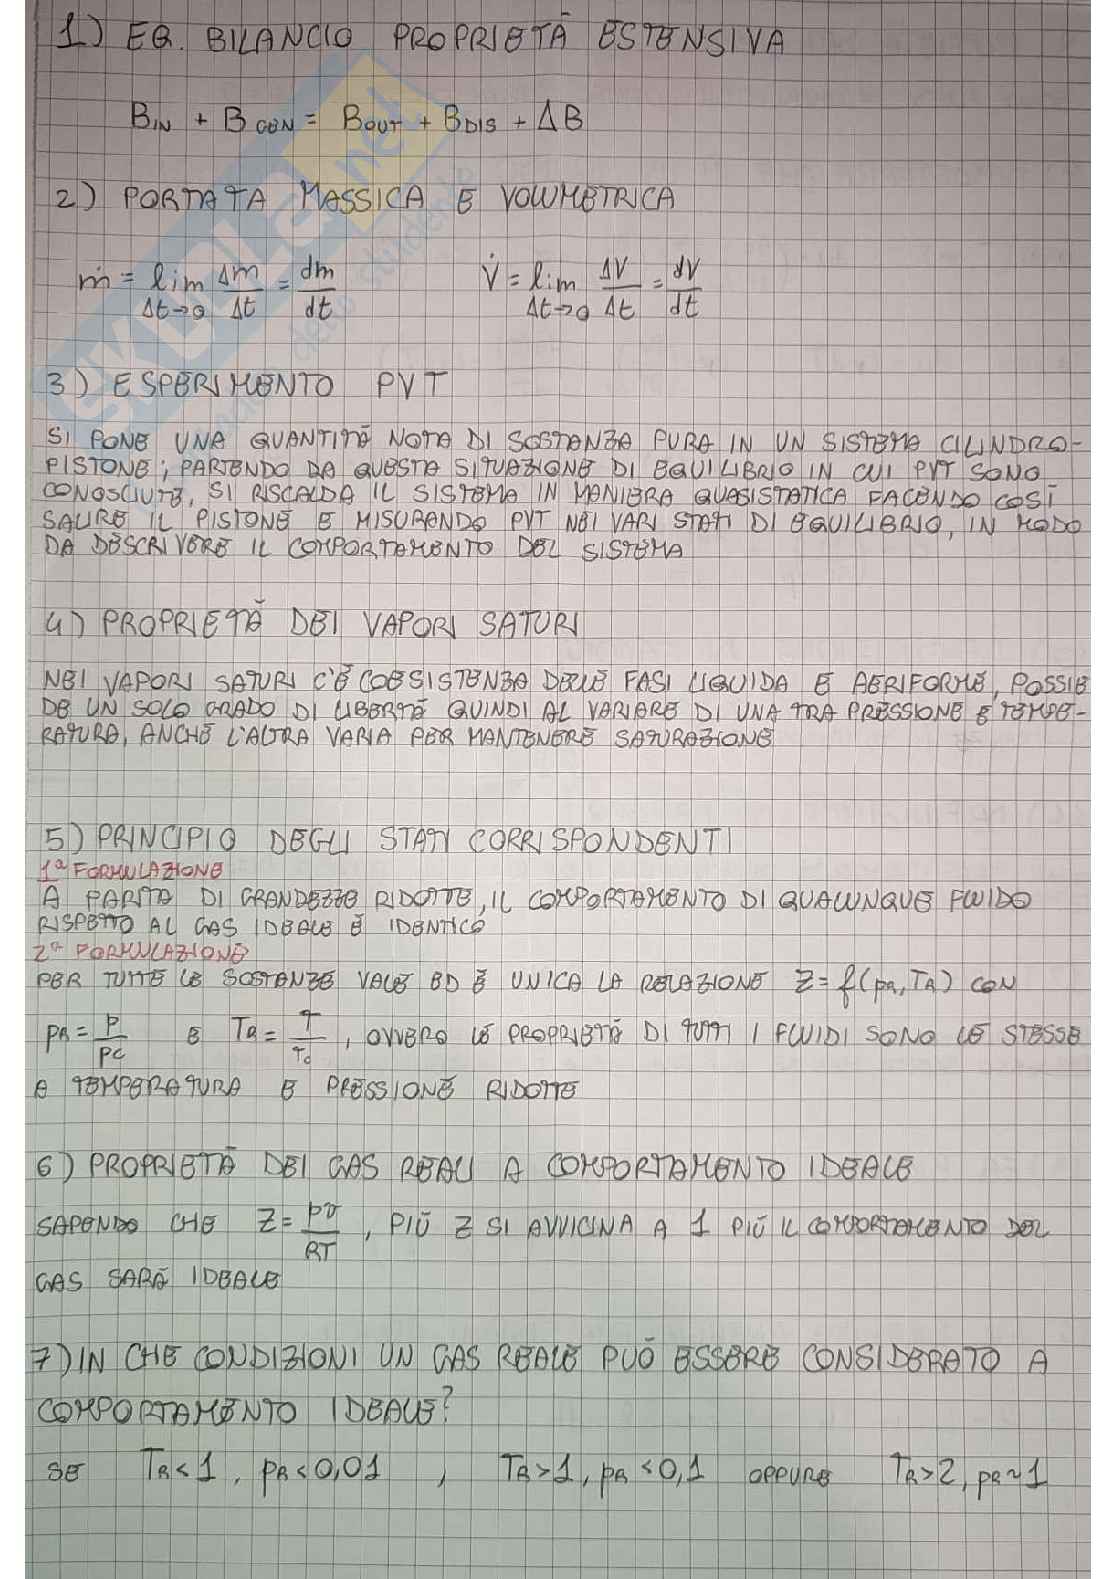 1) EQ. BILANCIO PROPRIETÀ ESTENSIVA
B_IN + B_GEN = B_OUT + B_DIS + ΔB
2) PORTATA MASSICA E VOLUMETRICA
ṁ = lim Δt→0 Δm/Δt = dm/dt V̇ = lim Δt→0 ΔV/Δt = dV/dt
3) ESPERIMENTO PVT
SI PONE UNA QUANTITÀ NOTA DI SOSTANZA PURA IN UN SISTEMA CILINDRO-
PISTONE; PARTENDO DA QUESTA SITUAZIONE DI EQUILIBRIO IN CUI PVT SONO
CONOSCIUTE, SI RISCALDA IL SISTEMA IN MANIERA QUASISTATICA FACENDO COSÌ
SALIRE IL PISTONE E MISURANDO PVT NEI VARI STATI DI EQUILIBRIO, IN MODO
DA DESCRIVERE IL COMPORTAMENTO DEL SISTEMA
4) PROPRIETÀ DEI VAPORI SATURI
NEI VAPORI SATURI C'È COESISTENZA DELLE FASI LIQUIDA E AERIFORME, POSSIE
DE UN SOLO GRADO DI LIBERTÀ QUINDI AL VARIARE DI UNA TRA PRESSIONE E TEMPE-
RATURA, ANCHE L'ALTRA VARIA PER MANTENERE SATURAZIONE
5) PRINCIPIO DEGLI STATI CORRISPONDENTI
1ª FORMULAZIONE
A PARITÀ DI GRANDEZZE RIDOTTE, IL COMPORTAMENTO DI QUALUNQUE FLUIDO
RISPETTO AL GAS IDEALE È IDENTICO
2ª FORMULAZIONE
PER TUTTE LE SOSTANZE VALE ED È UNICA LA RELAZIONE Z = f(p_R, T_R) CON
p_R = p/pc E T_R = T/Tc, OVVERO LE PROPRIETÀ DI TUTTI I FLUIDI SONO LE STESSE
A TEMPERATURA E PRESSIONE RIDOTTE
6) PROPRIETÀ DEI GAS REALI A COMPORTAMENTO IDEALE
SAPENDO CHE Z = pv/RT, PIÙ Z SI AVVICINA A 1 PIÙ IL COMPORTAMENTO DEL
GAS SARÀ IDEALE
7) IN CHE CONDIZIONI UN GAS REALE PUÒ ESSERE CONSIDERATO A
COMPORTAMENTO IDEALE?
SE T_R < 1, p_R < 0,01 , T_R > 1, p_R < 0,1 OPPURE T_R > 2, p_R ~ 1
SKUOLA.net